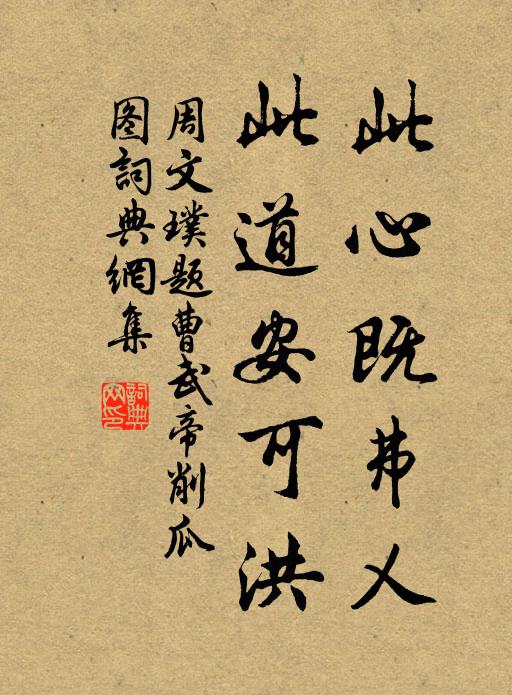 此心既弗乂
此道安可洪
周文璞题曹武帝削瓜
图词典網集
詞典網印